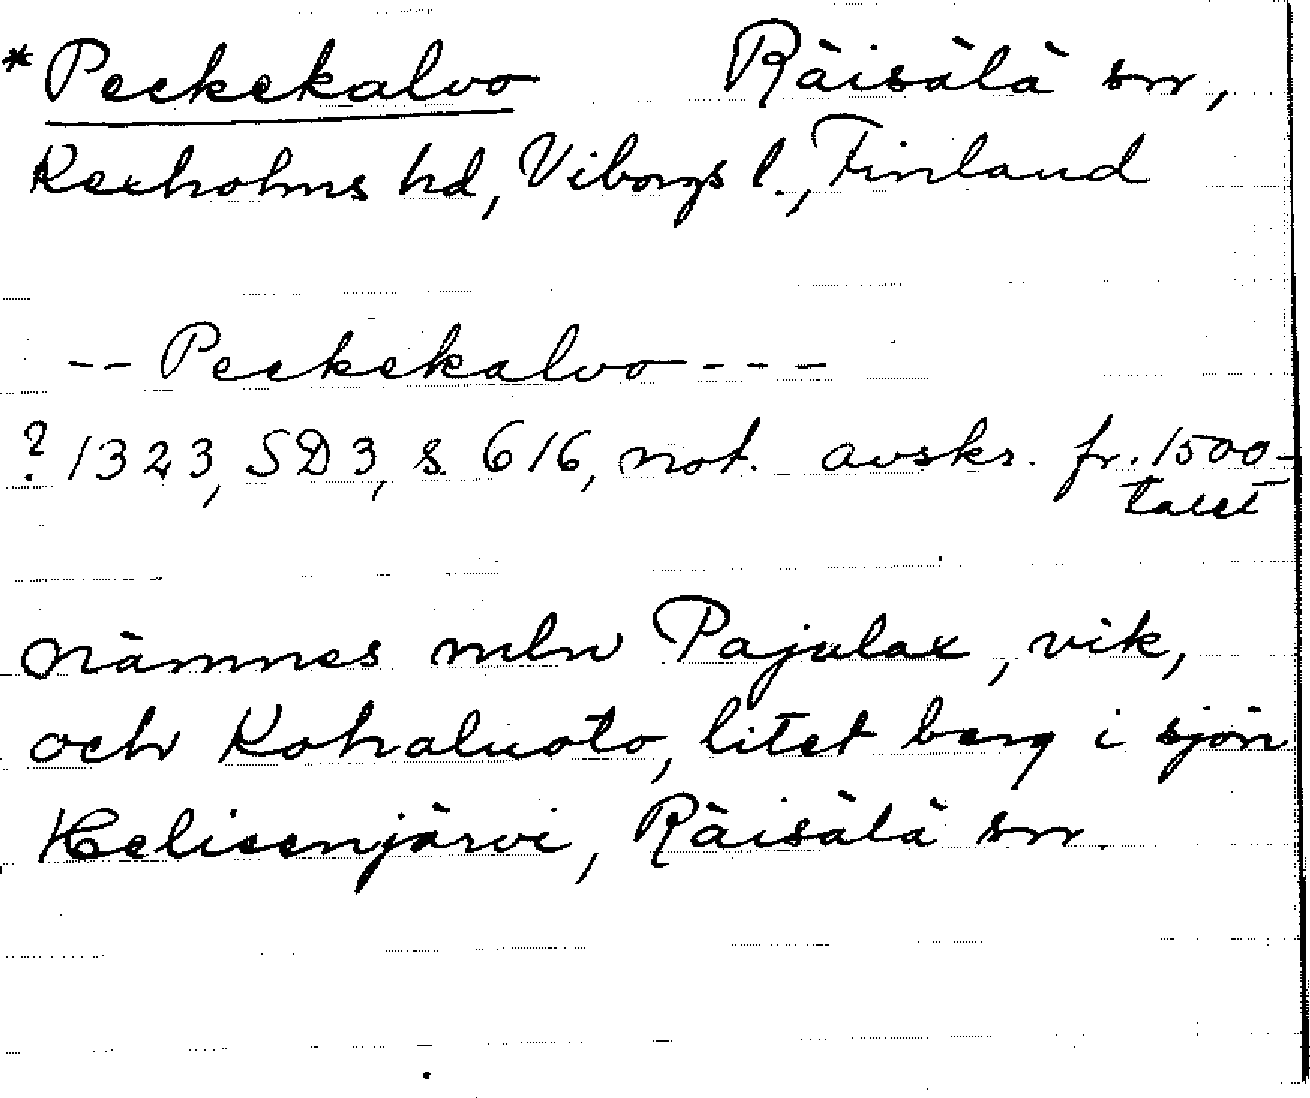 *Peckekalvo Räisälä sn,
Kexholms hd, Viborgs l., Finland
-- Peckekalvo ---
? 1323, SD3, s. 616, not. avskr. fr. 1500-
talet
Nämnes mln Pajulax, vik,
och Kohaluoto, litet berg i sjön
Helisenjärvi, Räisälä sn.